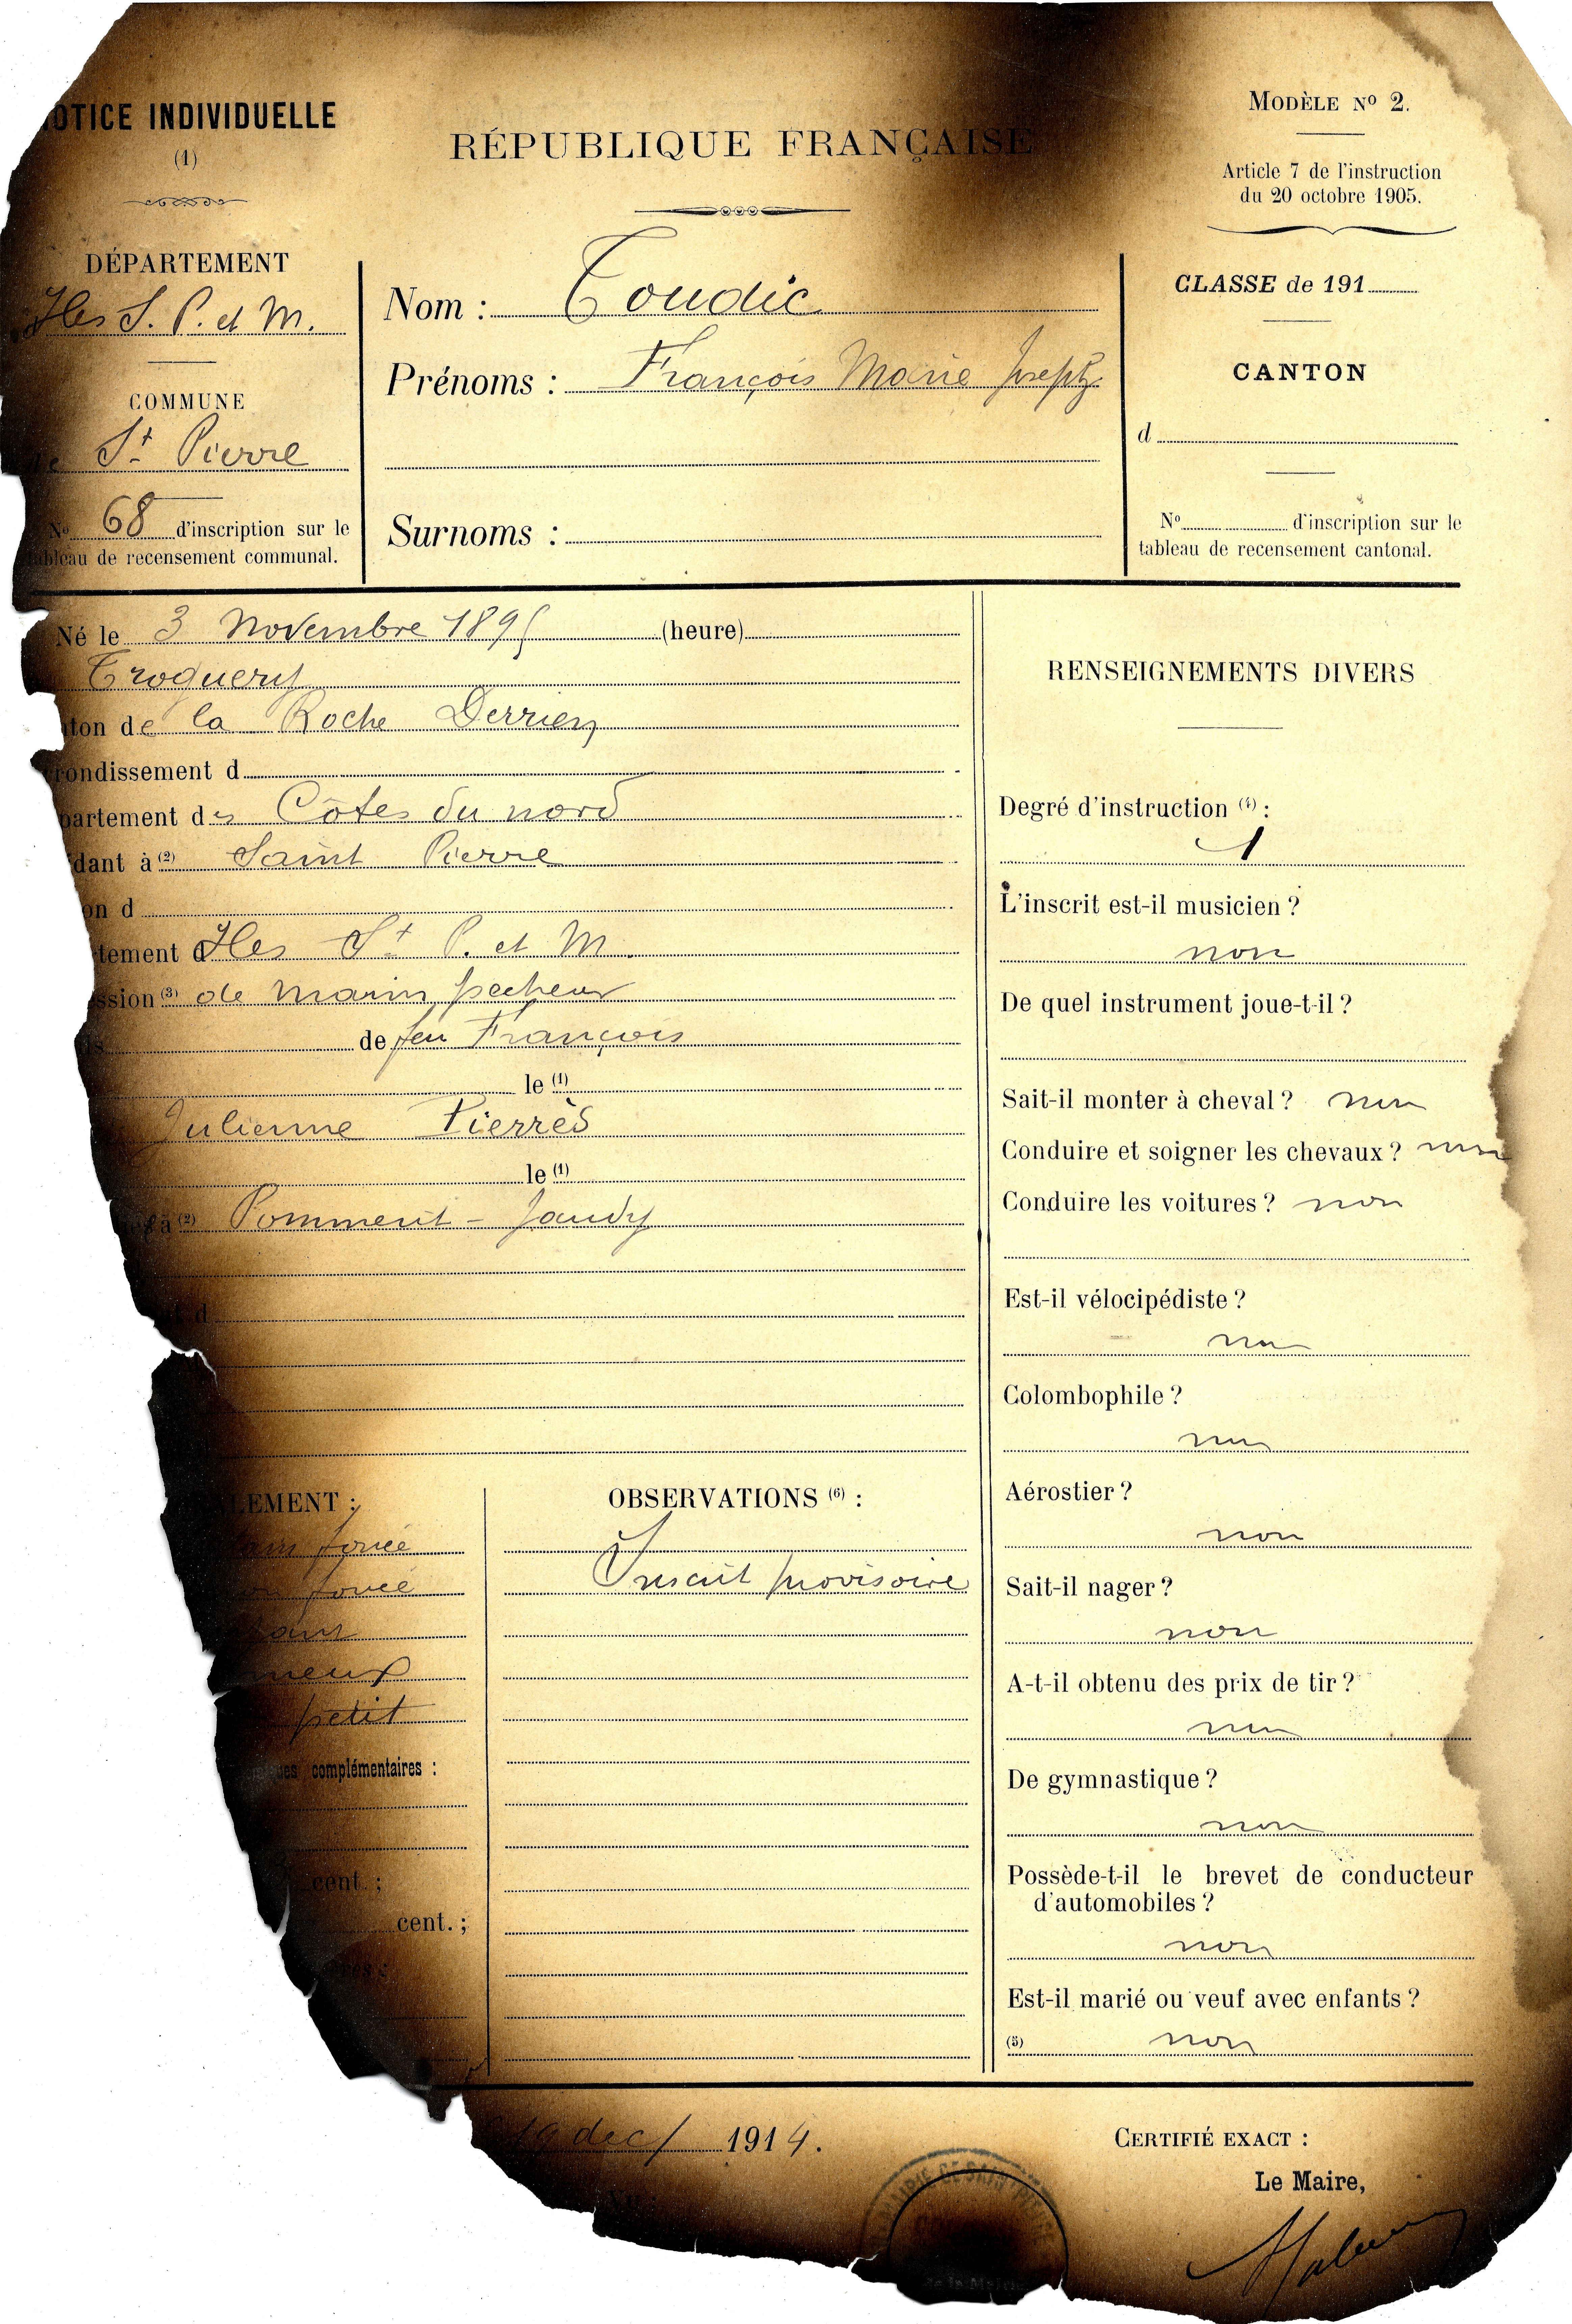 OTICE INDIVIDUELLE
(1)
RÉPUBLIQUE FRANÇAISE
MODÈLE No 2.
Article 7 de l'instruction
du 20 octobre 1905.
DÉPARTEMENT
Iles S. P. et M.
COMMUNE
St Pierre
No 68 d'inscription sur le
tableau de recensement communal.
Nom : Toudic
Prénoms : François Marie Joseph
Surnoms :
CLASSE de 191
CANTON
d
No d'inscription sur le
tableau de recensement cantonal.
Né le 3 Novembre 1895 (heure)
Troguery
ton de la Roche Derrien
rondissement d
partement des Côtes du nord
dant à (2) Saint Pierre
on d
tement d Iles St P. et M.
ssion (3) de marin pecheur
de feu François
le (1)
Julienne Pierrès
le (1)
à (2) Pommerit - Jaudy
d
LEMENT :
foncé
foncé
petit
complémentaires :
cent. ;
cent. ;
OBSERVATIONS (6) :
Inscrit provisoire
RENSEIGNEMENTS DIVERS
Degré d'instruction (4) :
1
L'inscrit est-il musicien ?
non
De quel instrument joue-t-il ?
Sait-il monter à cheval ? non
Conduire et soigner les chevaux ? non
Conduire les voitures ? non
Est-il vélocipédiste ?
non
Colombophile ?
non
Aérostier ?
non
Sait-il nager ?
non
A-t-il obtenu des prix de tir ?
non
De gymnastique ?
non
Possède-t-il le brevet de conducteur
d'automobiles ?
non
Est-il marié ou veuf avec enfants ?
(5) non
19 dec/ 1914.
CERTIFIÉ EXACT :
Le Maire,
MAIRIE DE SAINT PIERRE